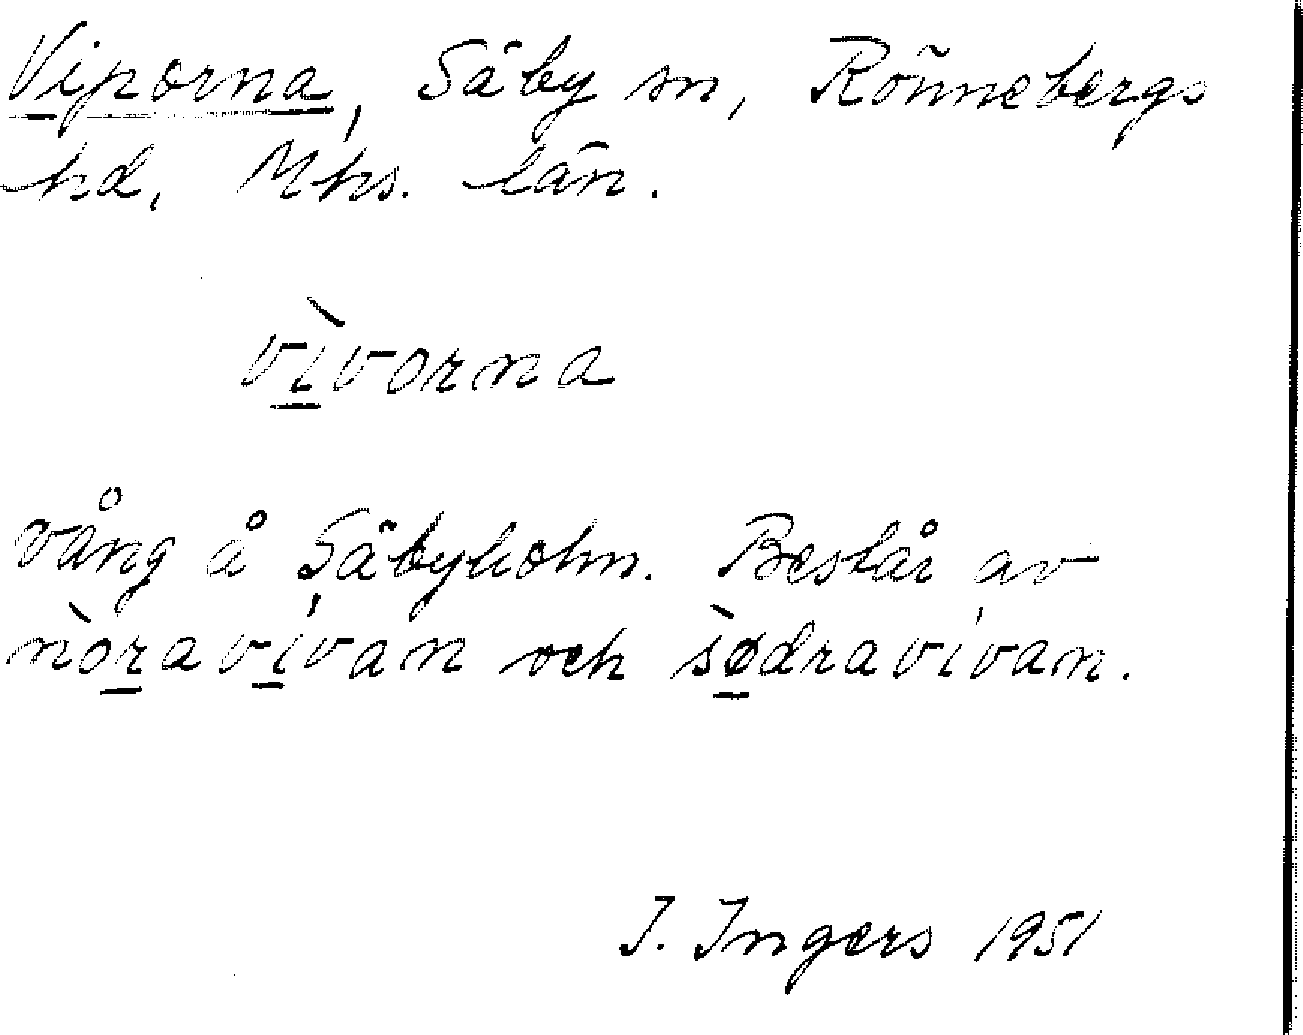 Viporna, Säby sn, Rönnebergs
hd, Mhs. län.
vì̱vorna
vång å Säbyholm. Består av
nòṟaví̱van och sø̱̀dravívan.
I. Ingers 1951